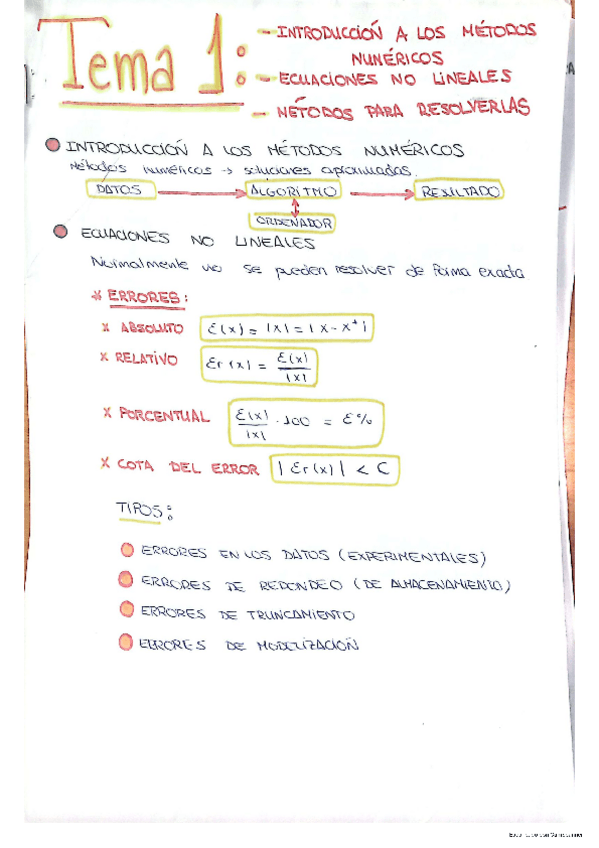 Tema 1:
- INTRODUCCIOÑ A LOS MÉTODOS
NUMÉRICOS
- ECUACIONES NO LINEALES
- MÉTODOS PARA RESOLVERLAS
INTRODUCCIOÑ A LOS MÉTODOS NUMÉRICOS
Métodos numéricos → soluciones aproximadas.
DATOS → ALGORITMO → RESULTADO
↕
ORDENADOR
ECUACIONES NO LINEALES
Normalmente no se pueden resolver de forma exacta
* ERRORES:
x ABSOLUTO ε(x) = |x| = |x - x*|
x RELATIVO εr(x) = ε(x) / |x|
x PORCENTUAL ε(x) / |x| · 100 = ε%
x COTA DEL ERROR |εr(x)| < C
TIPOS:
ERRORES EN LOS DATOS (EXPERIMENTALES)
ERRORES DE REDONDEO (DE ALMACENAMIENTO)
ERRORES DE TRUNCAMIENTO
ERRORES DE MODELIZACIOÑ